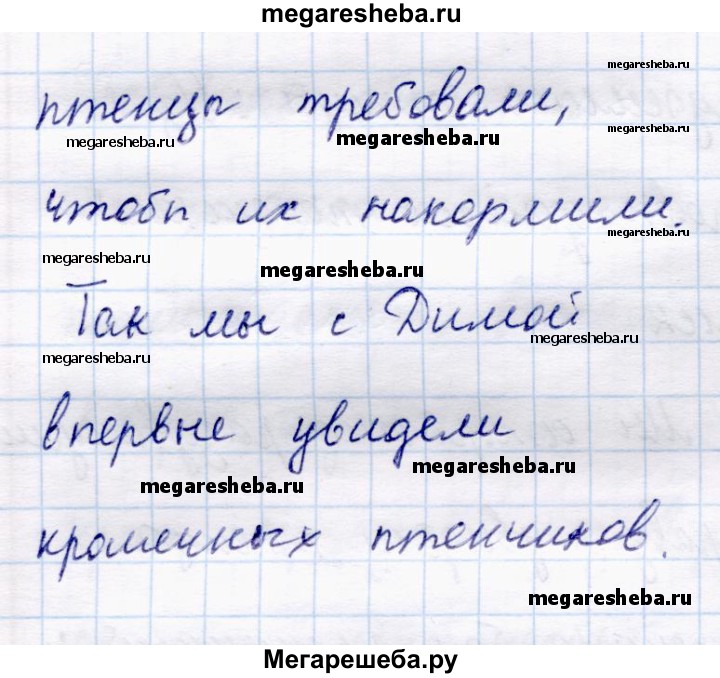 megaresheba.ru
megaresheba.ru
птенцы требовали,
megaresheba.ru
megaresheba.ru
megaresheba.ru
чтобы их накормили.
megaresheba.ru
megaresheba.ru
megaresheba.ru
Так мы с Димой
megaresheba.ru
megaresheba.ru
впервые увидели
megaresheba.ru
megaresheba.ru
крошечных птенчиков.
megaresheba.ru
Мегарешеба.ру